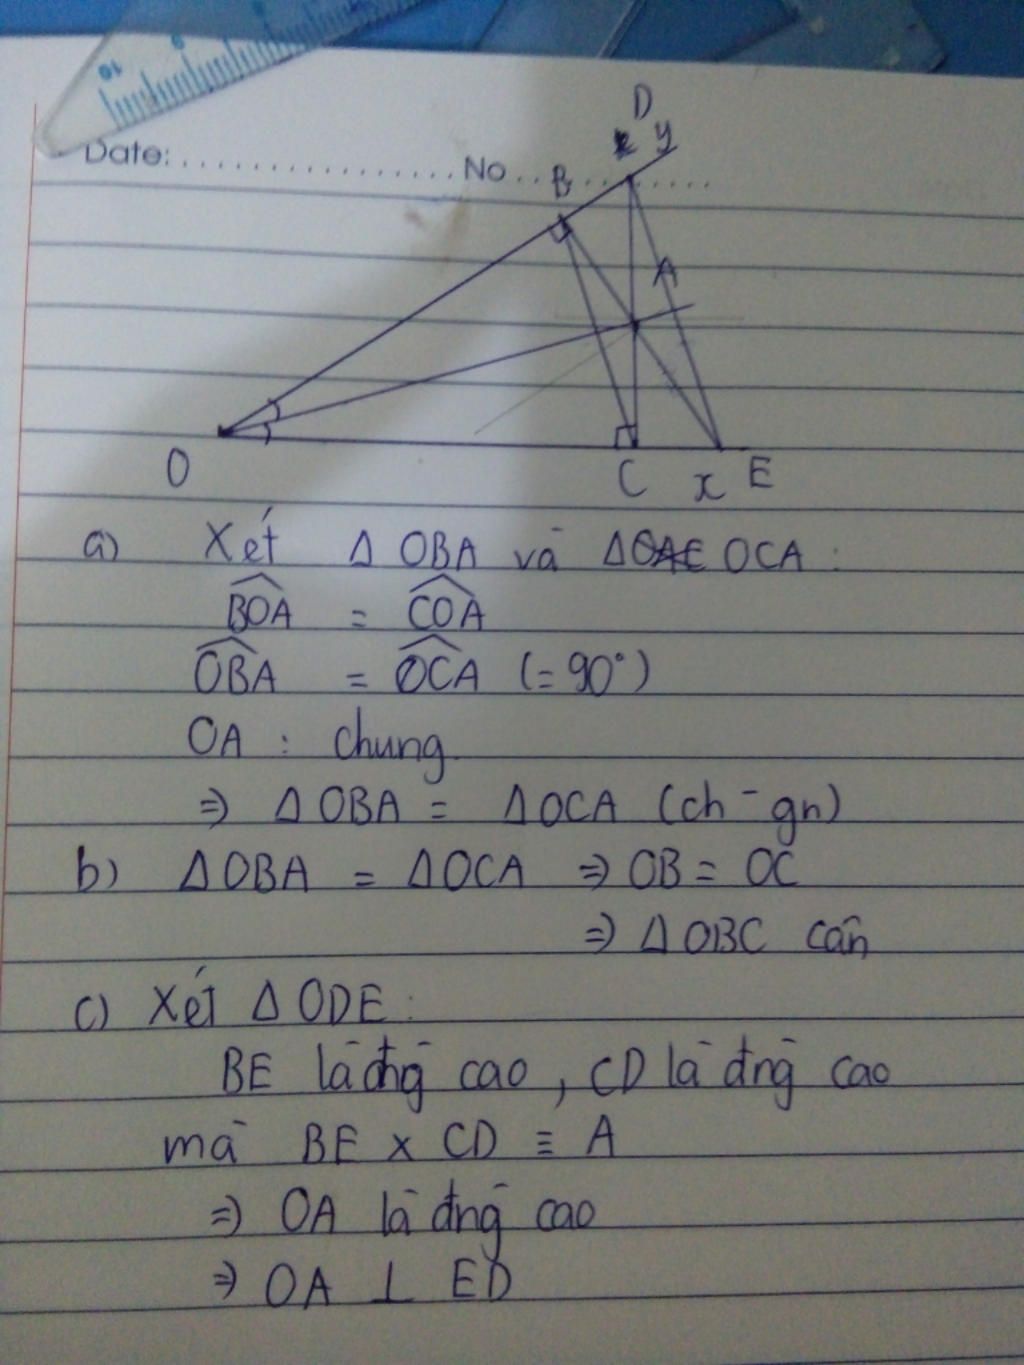 10
9
D
Date: ................. No .. ......
y
B
A
O
C x E
a) Xét Δ OBA và Δ OCA :
BOA = COA
OBA = OCA (= 90°)
OA : chung
=> Δ OBA = Δ OCA (ch - gn)
b) Δ OBA = Δ OCA => OB = OC
=> Δ OBC cân
c) Xét Δ ODE :
BE là đng cao , CD là đng cao
mà BE x CD ≡ A
=> OA là đng cao
=> OA ⊥ ED